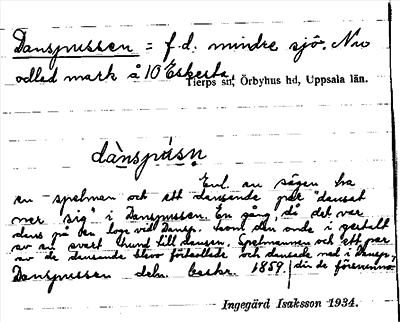 Danspussen = f.d. mindre sjö. Nu
odlad mark å 10 Eskesta,
Tierps sn, Örbyhus hd, Uppsala län.
dànspùsn
Enl. en sägen ha
en spelman och ett dansande par "dansat
ner sig" i Danspussen. En gång, då det var
dans på en loge vid Dansp. kom den onde i gestalt
av en svart hund till dansen. Spelmannen och ett par
av de dansande blevo förtrollade och dansade ned i Dansp.,
där de försvunno.
Danspussen deln. beskr. 1859.
Ingegärd Isaksson 1934.